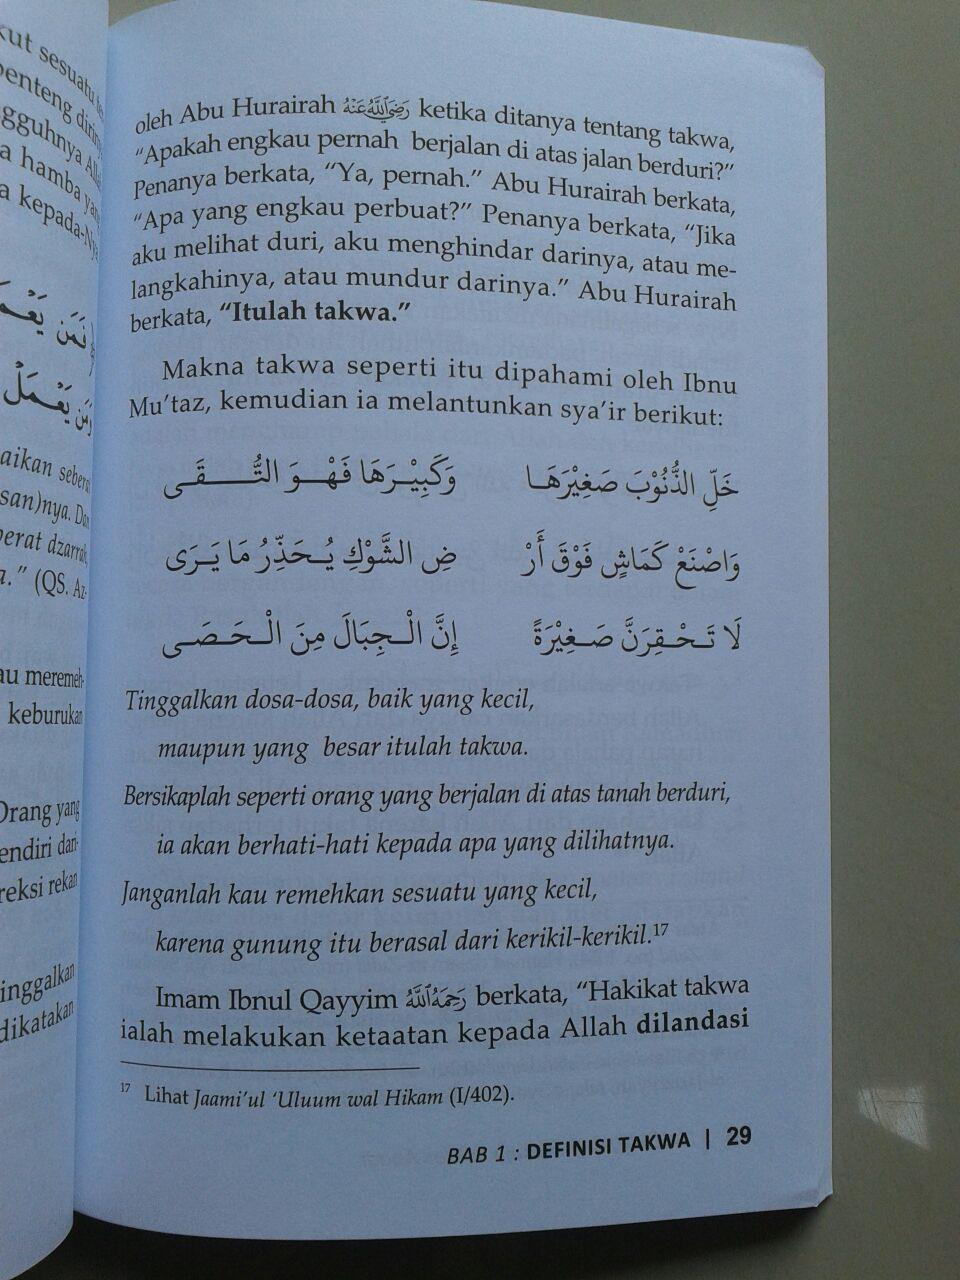 kut sesuatu
benteng
gguhnya
a hamba
a kepada-Nya
فَمَن يَعْمَ
وَمَن يَعْمَلْ
aikan
san)nya. Dan
erat dzarrah,
a." (QS. Az-
au meremeh-
keburukan
Orang yang
endiri dari-
reksi rekan
inggalkan
dikatakan
oleh Abu Hurairah رَضِيَاللَّهُعَنْهُ ketika ditanya tentang takwa,
"Apakah engkau pernah berjalan di atas jalan berduri?"
Penanya berkata, "Ya, pernah." Abu Hurairah berkata,
"Apa yang engkau perbuat?" Penanya berkata, "Jika
aku melihat duri, aku menghindar darinya, atau me-
langkahinya, atau mundur darinya." Abu Hurairah
berkata, "Itulah takwa."
Makna takwa seperti itu dipahami oleh Ibnu
Mu'taz, kemudian ia melantunkan sya'ir berikut:
خَلِّ الذُّنُوْبَ صَغِيْرَهَـا وَكَبِيْـرَهَا فَهْـوَ التُّـــــقَـى
وَاصْنَعْ كَمَاشٍ فَوْقَ أَرْ ضِ الشَّوْكِ يُـحَذِّرُ مَا يَـرَى
لَا تَـحْـقِرَنَّ صَـغِيْرَةً إِنَّ الْـجِبَالَ مِنَ الْـحَـصَـى
Tinggalkan dosa-dosa, baik yang kecil,
maupun yang besar itulah takwa.
Bersikaplah seperti orang yang berjalan di atas tanah berduri,
ia akan berhati-hati kepada apa yang dilihatnya.
Janganlah kau remehkan sesuatu yang kecil,
karena gunung itu berasal dari kerikil-kerikil.¹⁷
Imam Ibnul Qayyim رَحِمَهُاللَّهُ berkata, "Hakikat takwa
ialah melakukan ketaatan kepada Allah dilandasi
¹⁷ Lihat Jaami'ul 'Uluum wal Hikam (I/402).
BAB 1 : DEFINISI TAKWA | 29